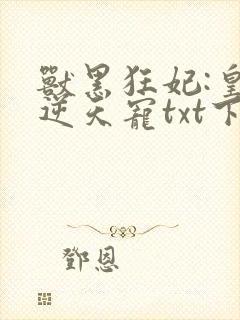 獸黑狂妃:皇
逆天寵txt下
鄧恩